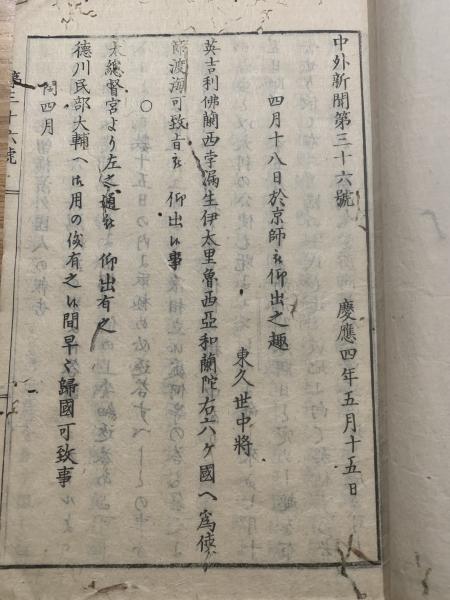 中外新聞第三十六號 慶應四年五月十五日
四月十八日於京師被仰出之趣
東久世中將
英吉利佛蘭西孛漏生伊太里魯西亞和蘭陀右六ヶ國へ爲使
節渡海可致旨被 仰出候事
○
大總督宮より左之通被 仰出有之
德川民部大輔へ御用の儀有之候間早々歸國可致事
閏四月
第三十六號